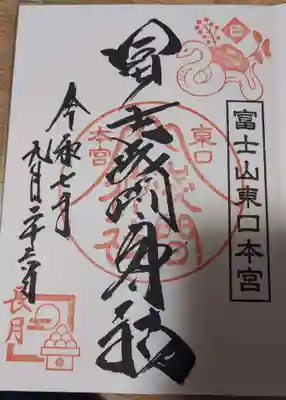 富士山東口本宮
冨士浅間神社
東口
本宮
令和七年
九月二十三日
長月
巳